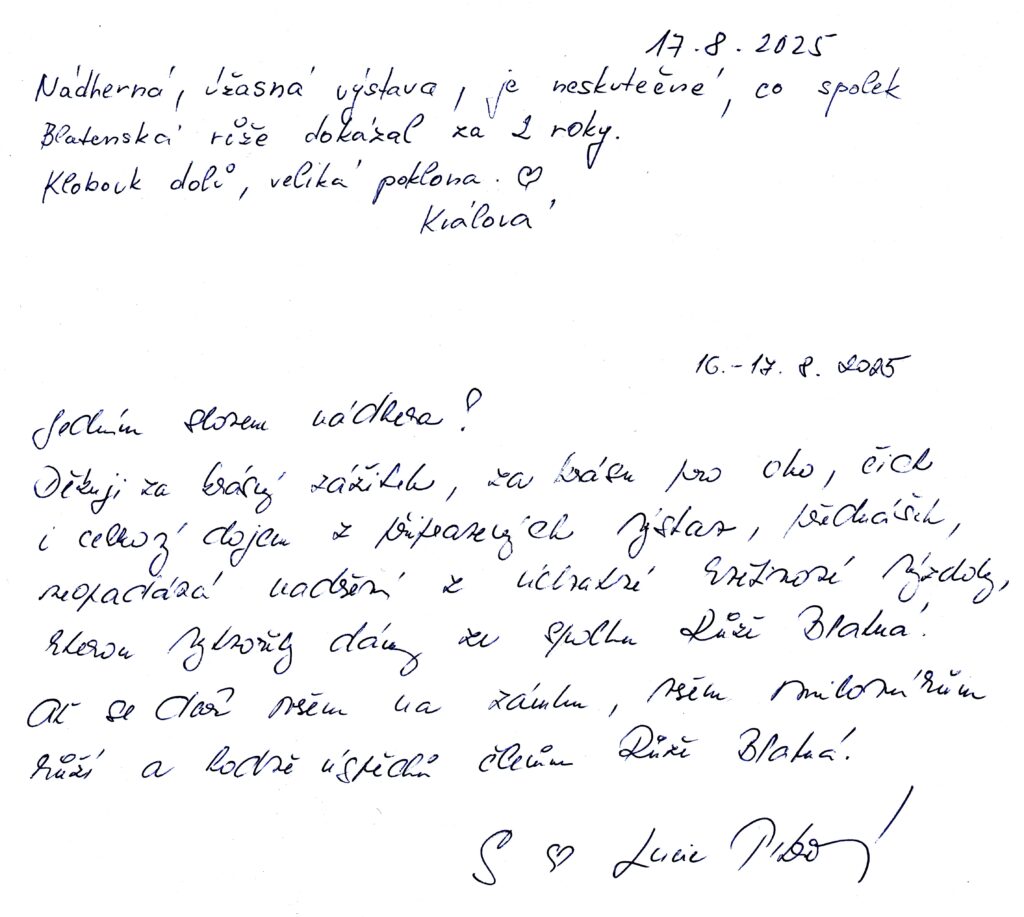 17.8.2025
Nádherná, úžasná výstava, je neskutečné, co spolek
Blatenská růže dokázal za 2 roky.
Klobouk dolů, veliká poklona. ♡
Králová
16.-17. 8. 2025
Jedním slovem nádhera!
Děkuji za krásný zážitek, za krásu pro oko, čich
i celkový dojem z připravených výstav, přednášek,
neopadává nadšení z úchvatné květinové výzdoby,
kterou vytvořily dámy ze spolku Růže Blatná!
Ať se daří všem na zámku, všem milovníkům
růží a hodně úspěchů členům Růže Blatná!
S ♡ Lucie